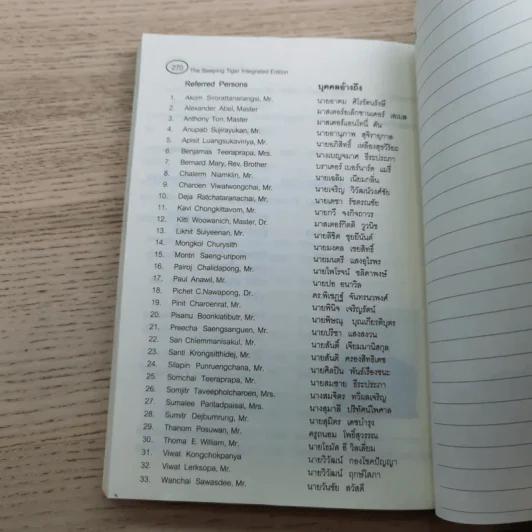 270 The Sleeping Tiger Integrated Edition
Referred Persons บุคคลอ้างถึง
1. Akom Sirorattanarangsi, Mr. นายอาคม ศิโรรัตนรังษี
2. Alexander Abel, Master มาสเตอร์อเล็กซานเดอร์ เอเบล
3. Anthony Ton, Master มาสเตอร์แอนโทนี่ ตัน
4. Anupab Sujirayukan, Mr. นายอานุภาพ สุจิรายุกาล
5. Apisit Luangsukaviriya, Mr. นายอภิสิทธิ์ เหลืองสุขวิริยะ
6. Benjamas Teeraprapa, Mrs. นางเบญจมาศ ธีระประภา
7. Bernard Mary, Rev. Brother บราเดอร์ เบอร์นาร์ด แมรี่
8. Chalerm Niamklin, Mr. นายเฉลิม เนียมกลิ่น
9. Charoen Viwatwongchai, Mr. นายเจริญ วิวัฒน์วงศ์ชัย
10. Deja Ratchataranachai, Mr. นายเดชา รัชตรณชัย
11. Kavi Chongkittavorn, Mr. นายกวี จงกิจถาวร
12. Kitti Woowanich, Master, Dr. มาสเตอร์กิตติ วูวนิช
13. Likhit Suiyeenan, Mr. นายลิขิต ซุยยีนันต์
14. Mongkol Churysith นายมงคล เชยสิทธิ์
15. Montri Saeng-uriporn นายมนตรี แสงอุไรพร
16. Pairoj Chalidapong, Mr. นายไพโรจน์ ชลิดาพงษ์
17. Paul Anawil, Mr. นายปอ อนาวิล
18. Pichet C.Nawapong, Dr. ดร.พิเชฏฐ์ จันทรนวพงศ์
19. Pinit Charoenrat, Mr. นายพินิจ เจริญรัตน์
20. Pisanu Boonkiatibutr, Mr. นายพิษณุ บุญเกียรติบุตร
21. Preecha Saengsanguen, Mr. นายปรีชา แสงสงวน
22. San Chiemmanisakul, Mr. นายสันติ์ เจียมมานิสกุล
23. Santi Krongsitthidej, Mr. นายสันติ ครองสิทธิเดช
24. Silapin Punruengchana, Mr. นายศิลปิน พันธ์เรืองชนะ
25. Somchai Teeraprapa, Mr. นายสมชาย ธีระประภา
26. Somjitr Taveepholcharoen, Mrs. นางสมจิตร ทวีผลเจริญ
27. Sumalee Paritadpaisal, Mrs. นางสุมาลี ปริทัศน์ไพศาล
28. Sumitr Dejbumrung, Mr. นายสุมิตร เดชบำรุง
29. Thanom Posuwan, Mr. ครูถนอม โพธิ์สุวรรณ
30. Thoma E. William, Mr. นายโธมัส อี วิลเลี่ยม
31. Viwat Kongchokpanya นายวิวัฒน์ กองโชคปัญญา
32. Viwat Lerksopa, Mr. นายวิวัฒน์ ฤกษ์โสภา
33. Wanchai Sawasdee, Mr. นายวันชัย สวัสดี